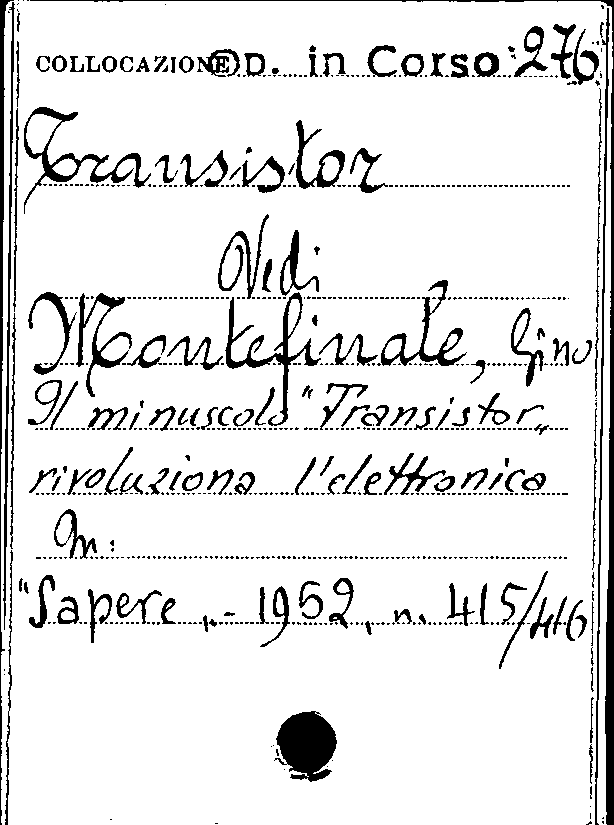 COLLOCAZIONE D. in Corso 276
Transistor
Vedi
Montefinale, Gino
Il minuscolo "Transistor„
rivoluziona l'elettronica
In:
"Sapere„ - 1952, n. 415/416